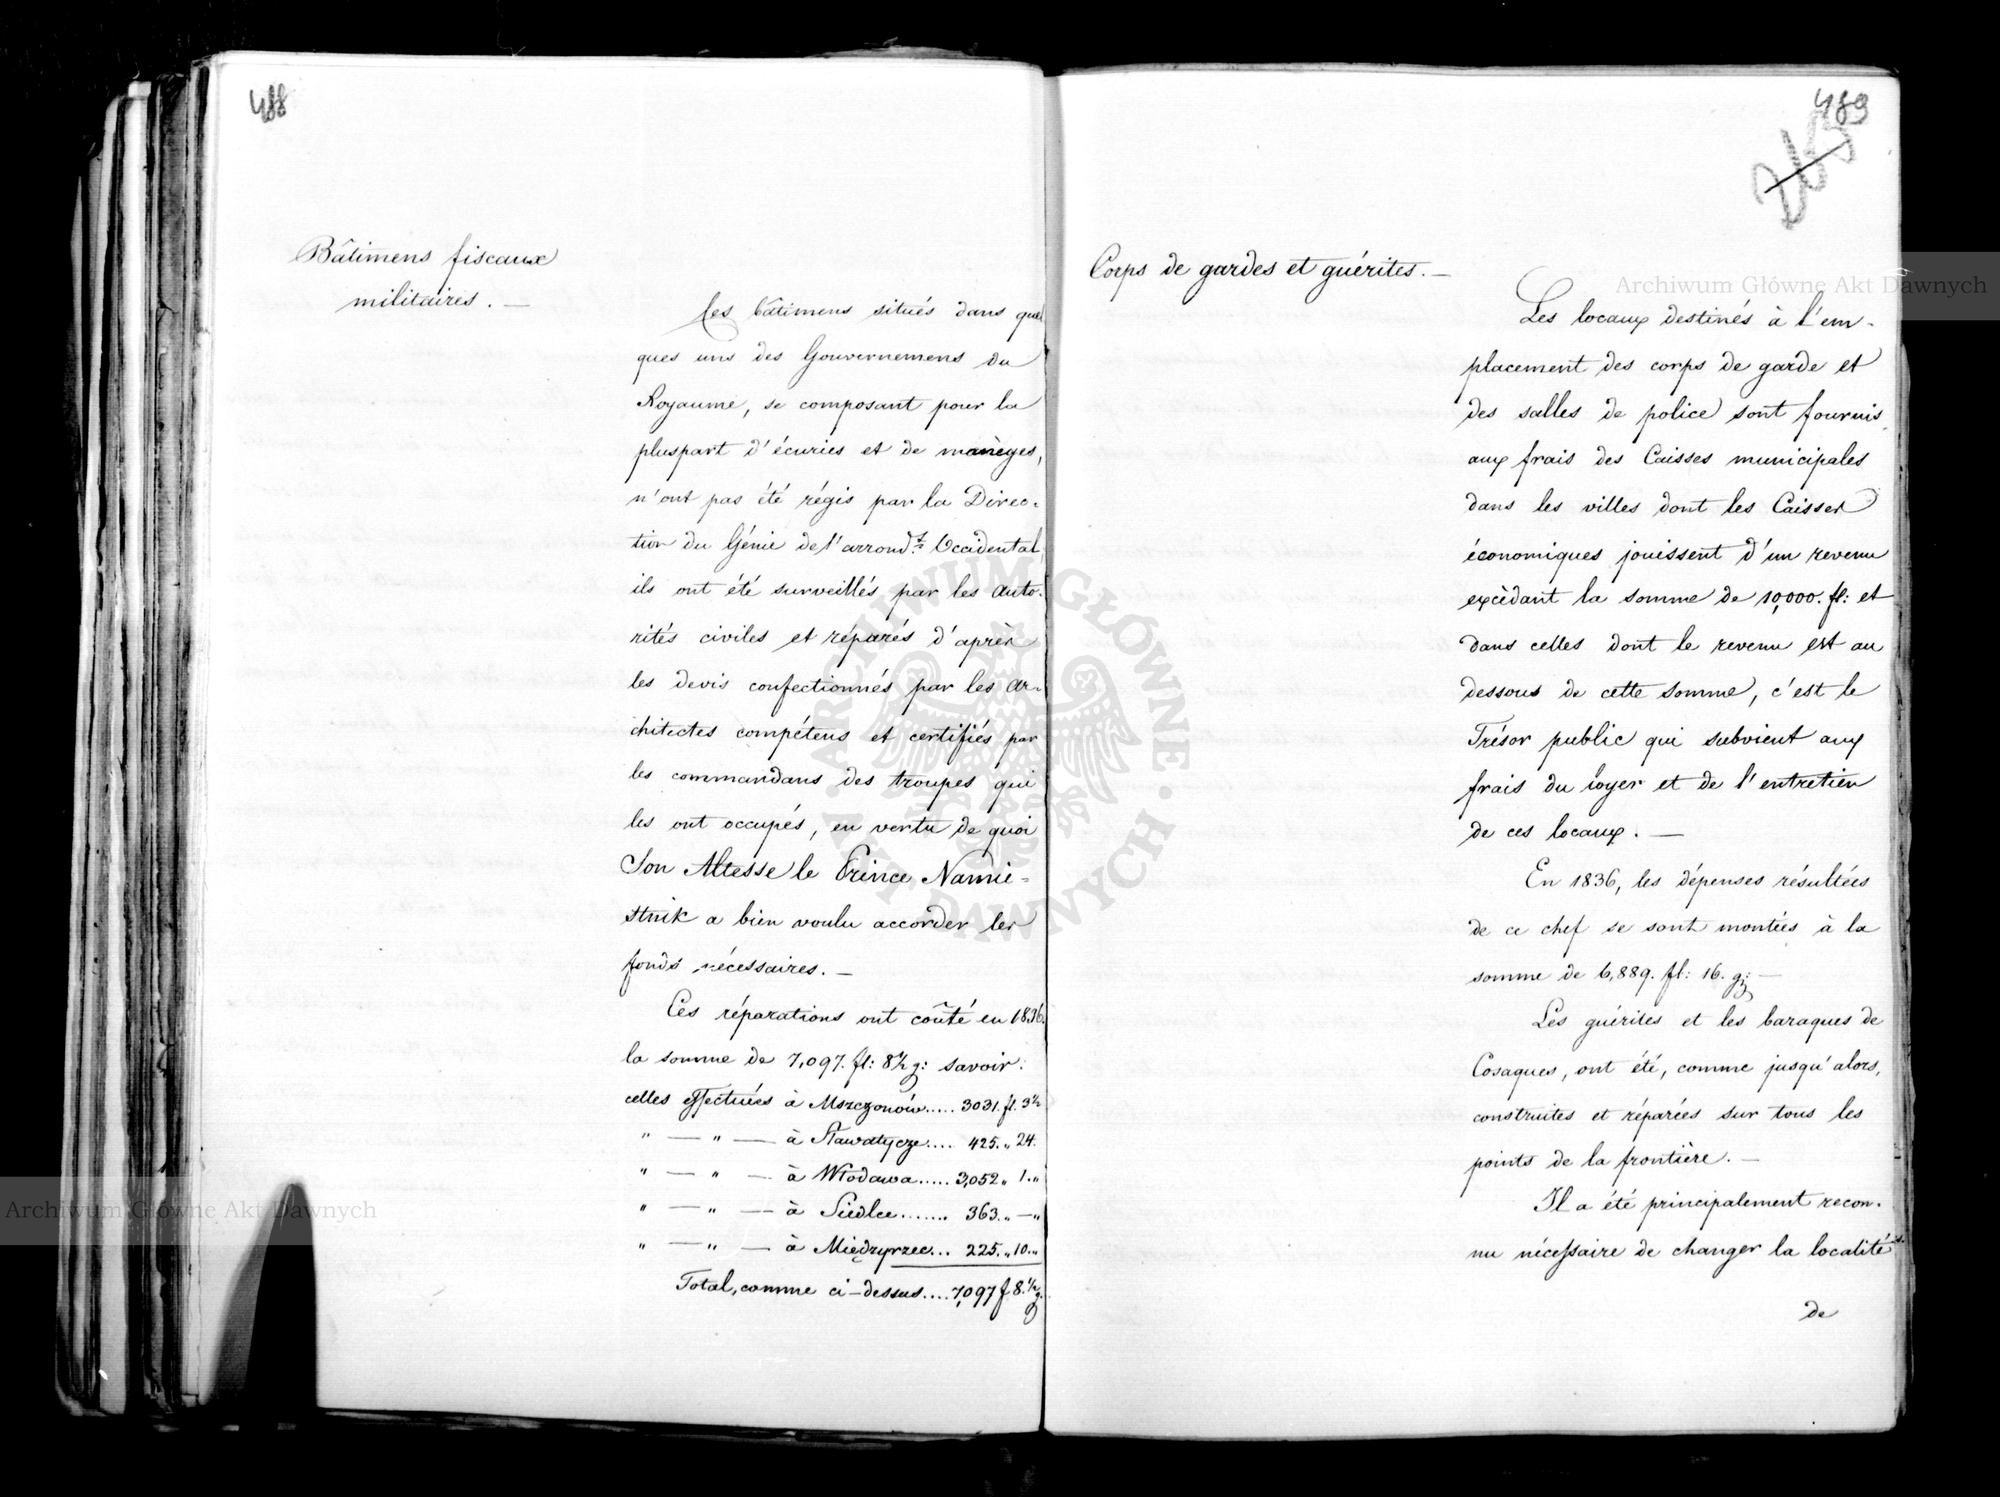 488
Bâtimens fiscaux
militaires. —
Les bâtimens situés dans quel
ques uns des Gouvernemens du
Royaume, se composant pour la
pluspart d'écuries et de manèges,
n'ont pas été régis par la Direc-
tion du Génie de l'arrond.t Occidental
ils ont été surveillés par les Auto-
rités civiles et réparés d'après
les devis confectionnés par les Ar-
chitectes compétens et certifiés par
les commandans des troupes qui
les ont occupés, en vertu de quoi
Son Altesse le Prince Namie-
stnik a bien voulu accorder les
fonds nécessaires. —
Ces réparations ont coûté en 1836.
la somme de 7,097. fl: 8½ g: savoir:
celles effectuées à Mszczonów..... 3031. fl. 3½
" — " — à Sławatycze.... 425. " 24.
" — " — à Włodawa..... 3,052 " 1. "
" — " — à Siedlce....... 363. " — "
" — " — à Międzyrzec... 225. " 10. "
Total, comme ci-dessus.... 7,097 f 8.½ g.
489
265
Corps de gardes et guérites. —
Les locaux destinés à l'em-
placement des corps de garde et
des salles de police sont fournis
aux frais des Caisses municipales
dans les villes dont les Caisses
économiques jouissent d'un revenu
excèdant la somme de 10,000. fl: et
dans celles dont le revenu est au
dessous de cette somme, c'est le
Trésor public qui subvient aux
frais du loyer et de l'entretien
de ces locaux. —
En 1836, les dépenses résultées
de ce chef se sont montées à la
somme de 6,889. fl: 16. g: —
Les guérites et les baraques de
Cosaques, ont été, comme jusqu'alors,
construites et réparées sur tous les
points de la frontière. —
Il a été principalement recon-
nu nécessaire de changer la localité
de
Archiwum Główne Akt Dawnych
Archiwum Główne Akt Dawnych
ARCHIWUM GŁÓWNE AKT DAWNYCH